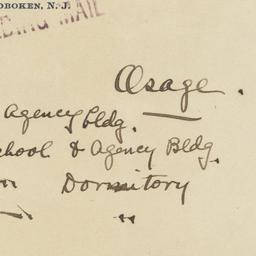 OBOKEN, N. J.
DING MAIL
Osage.
Agency bldg.
chool & Agency Bldg.
Dormitory
"